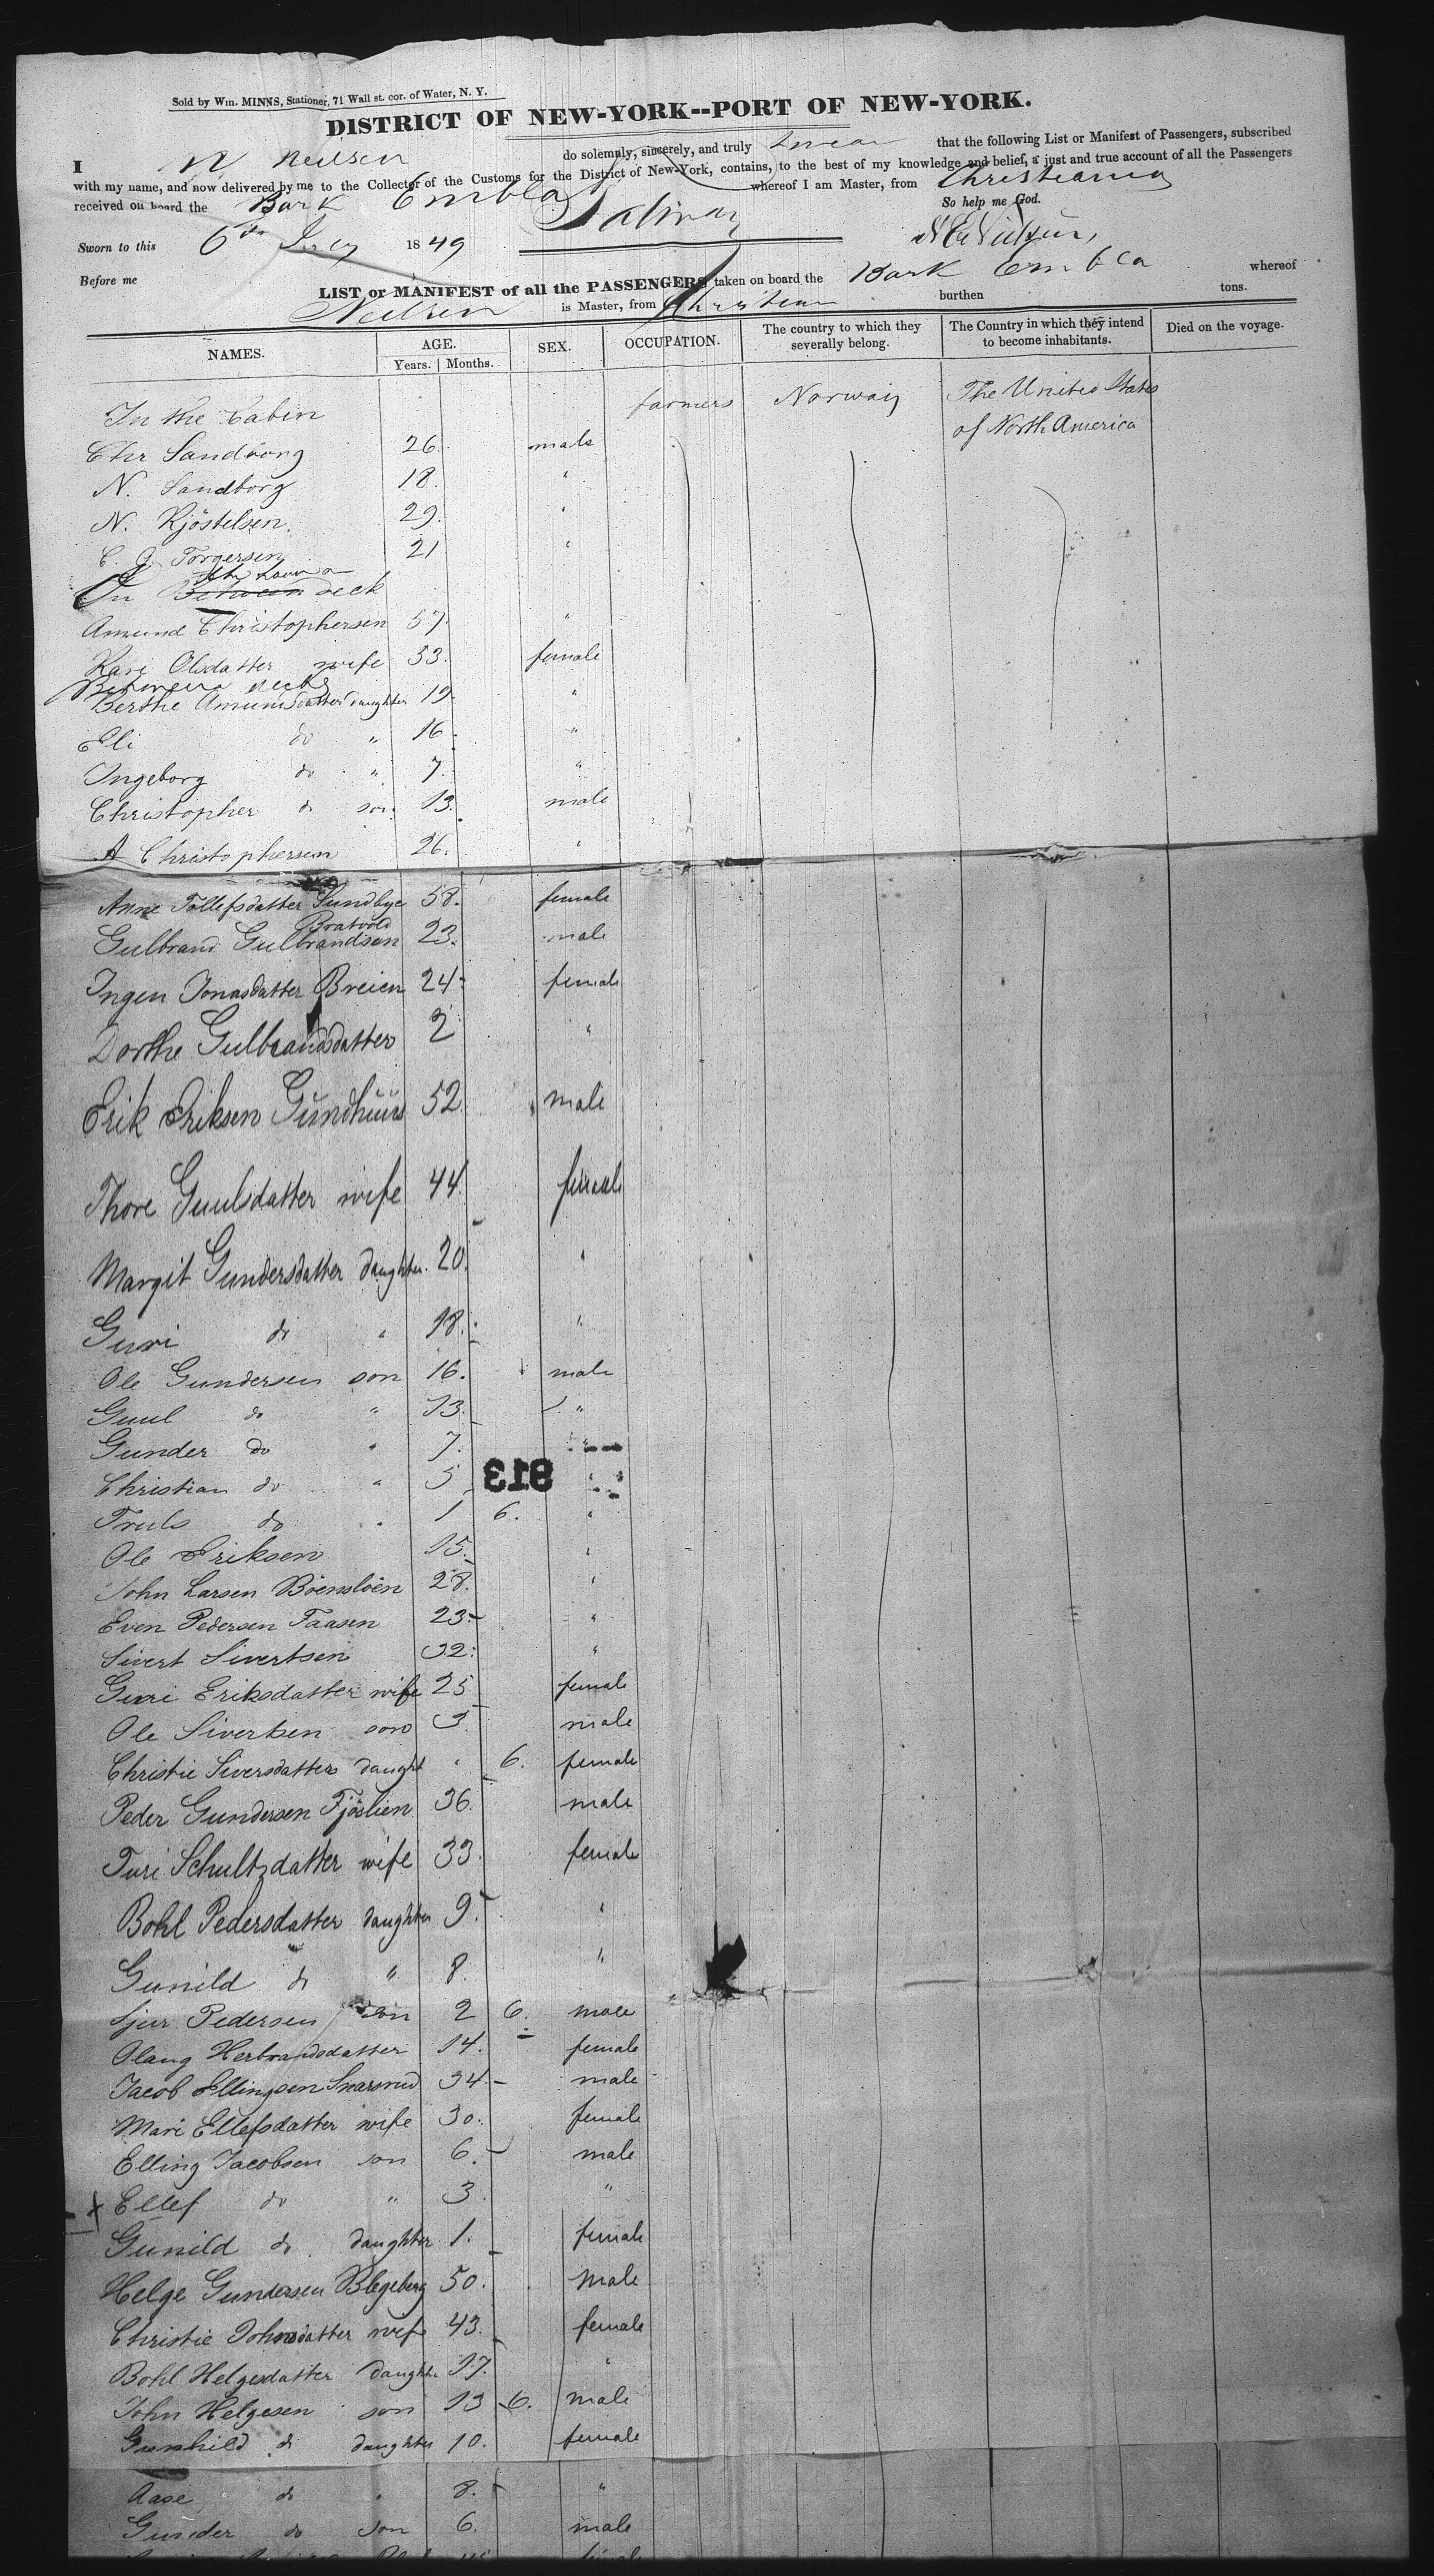 Sold by Wm. MINNS, Stationer, 71 Wall st. cor. of Water, N. Y.
DISTRICT OF NEW-YORK--PORT OF NEW-YORK.
I N Neilsen do solemnly, sincerely, and truly swear that the following List or Manifest of Passengers, subscribed
with my name, and now delivered by me to the Collector of the Customs for the District of New-York, contains, to the best of my knowledge and belief, a just and true account of all the Passengers
received on board the Bark Embla whereof I am Master, from Christiania
So help me God.
Sworn to this 6th July 1849
Before me
LIST or MANIFEST of all the PASSENGERS taken on board the Bark Embla whereof
Neilsen is Master, from Christiania burthen tons.
NAMES. AGE. SEX. OCCUPATION. The country to which they severally belong. The Country in which they intend to become inhabitants. Died on the voyage.
Years. Months.
In the Cabin farmers Norway The United States
of North America
Chr Sandborg 26. male
N. Sandborg 18. "
N. Kjöstelsen. 29. "
C. G. Torgersen 21 "
On Between deck
Amund Christophersen 57. "
Kari Olsdatter wife 53. female
Between decks
Berthe Amundsdatter daughter 19. "
Eli do " 16. "
Ingeborg do " 7. "
Christopher do son 13. male
A Christophersen 26. "
Anne Tollefsdatter Sundbye 58. female
Bratvold
Gulbrand Gulbrandsen 23. male
Ingen Jonasdatter Breien 24. female
Dorthe Gulbrandsdatter 2 "
Erik Eriksen Gundhuus 52 male
Thore Guulsdatter wife 44. female
Margit Gundersdatter daughter. 20. "
Guri do " 18. "
Ole Gundersen son 16. male
Guul do " 13. "
Gunder do " 7. "
Christian do " 5 "
813
Truls do " 1 6. "
Ole Eriksen 15. "
John Larsen Böensloën 28. "
Even Pedersen Faasen 23. "
Sivert Sivertsen 32. "
Guri Eriksdatter wife 25 female
Ole Sivertsen son 3. male
Christie Siversdatter daught " 6. female
Peder Gundersen Fjöslien 36. male
Turi Schultzdatter wife 33. female
Bohl Pedersdatter daughter 9. "
Gunild do " 8. "
Sjur Pedersen son 2 6. male
Olaug Herbrandsdatter 14. female
Jacob Ellingsen Snarsrud 34. male
Mari Ellefsdatter wife 30. female
Elling Jacobsen son 6. male
x Ellef do " 3. "
Gunild do daughter 1. female
Helge Gundersen Blegeberg 50. male
Christie Johnsdatter wife 43. female
Bohl Helgesdatter daughter 17. "
John Helgesen son 13 6. male
Gunhild do daughter 10. female
Aase do " 8. "
Gunder do son 6. male